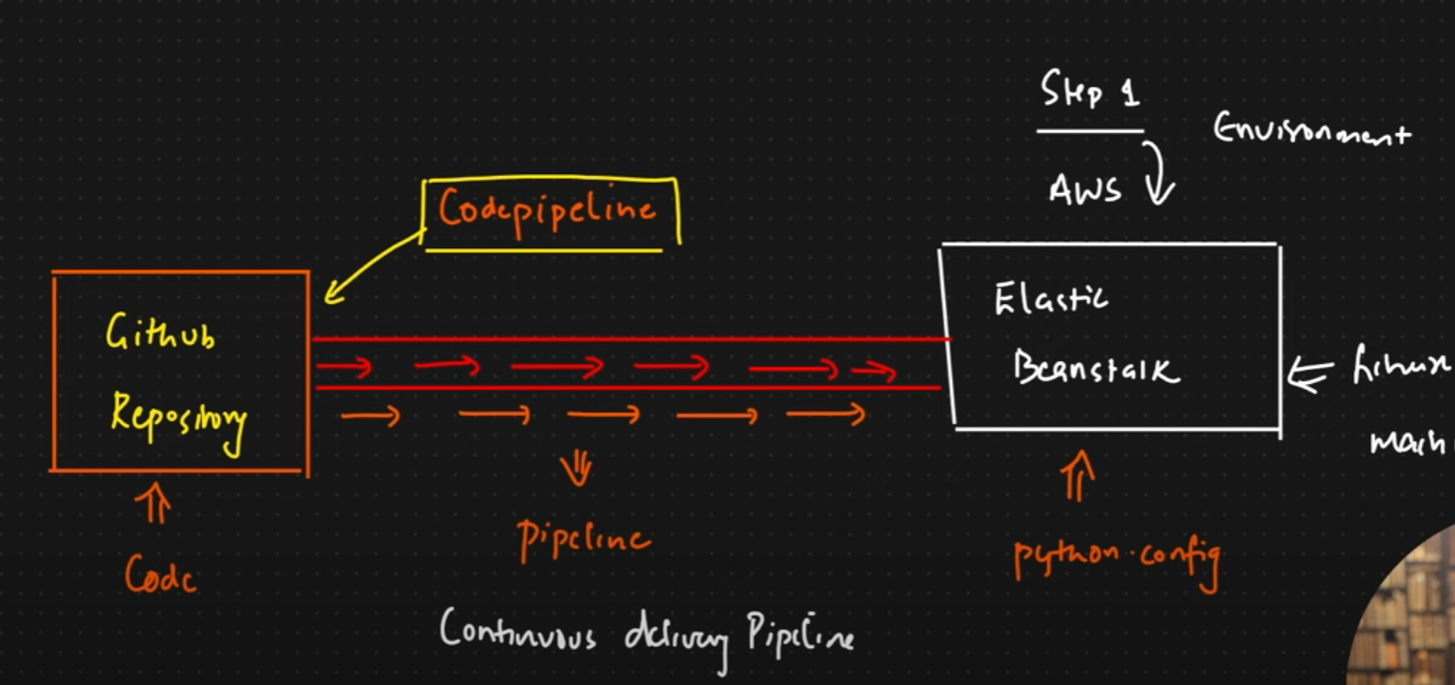 Step 1
Environment
AWS
Codepipeline
Github
Repository
Elastic
Beanstalk
Linux
Code
Pipeline
python.config
Continuous delivery Pipeline